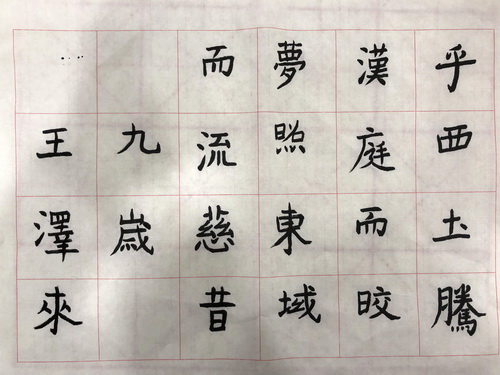 乎西土騰
漢庭而皎
夢照東域
而流慈昔
九歲
王澤來